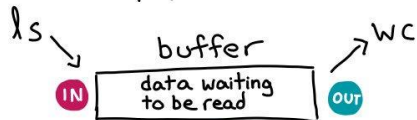 ls
wc
buffer
IN
data waiting
to be read
OUT